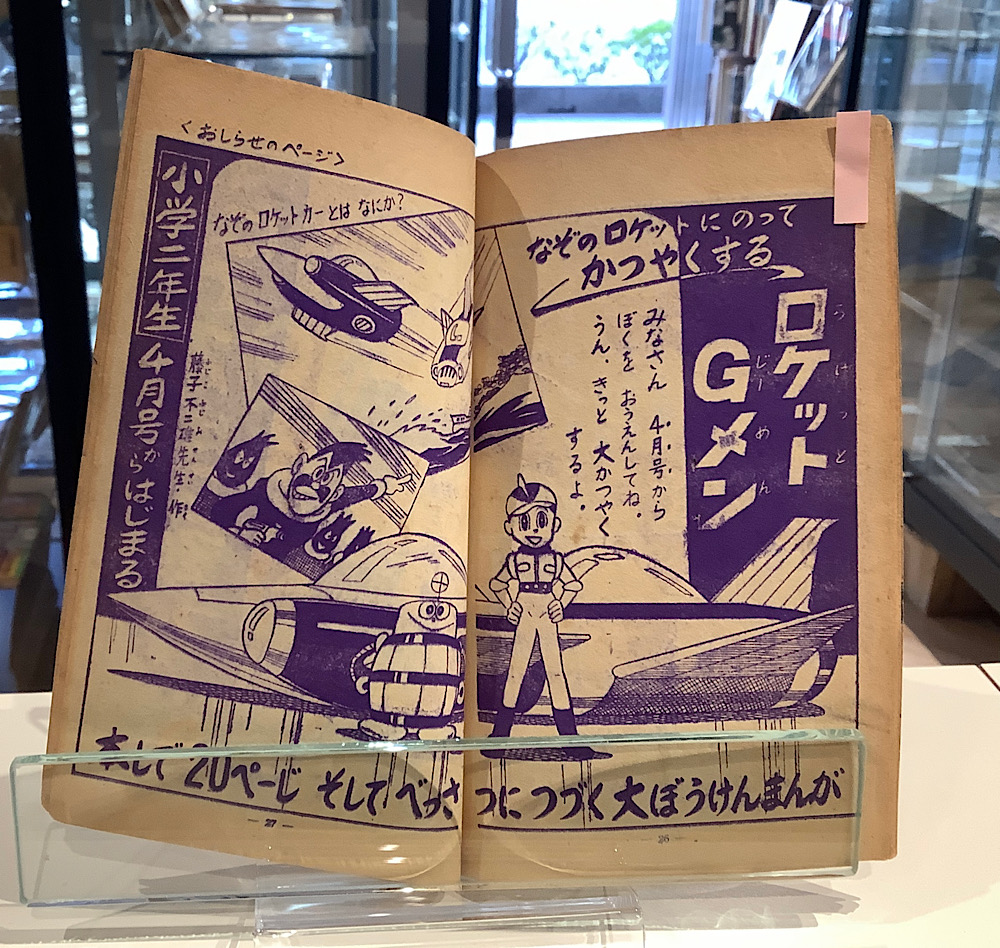 なぞのロケットにのって
かつやくする
ロケット
ろけっと
Gメン
じーめん
みなさん 4月号から
ぼくを おうえんしてね。
うん、きっと 大かつやく
するよ。
<おしらせのページ>
なぞの ロケットカーとは なにか?
藤子不二雄先生・作
小学二年生 4月号からはじまる
本しで 20ぺーじ そして べっさつに つづく 大ぼうけんまんが
27
26